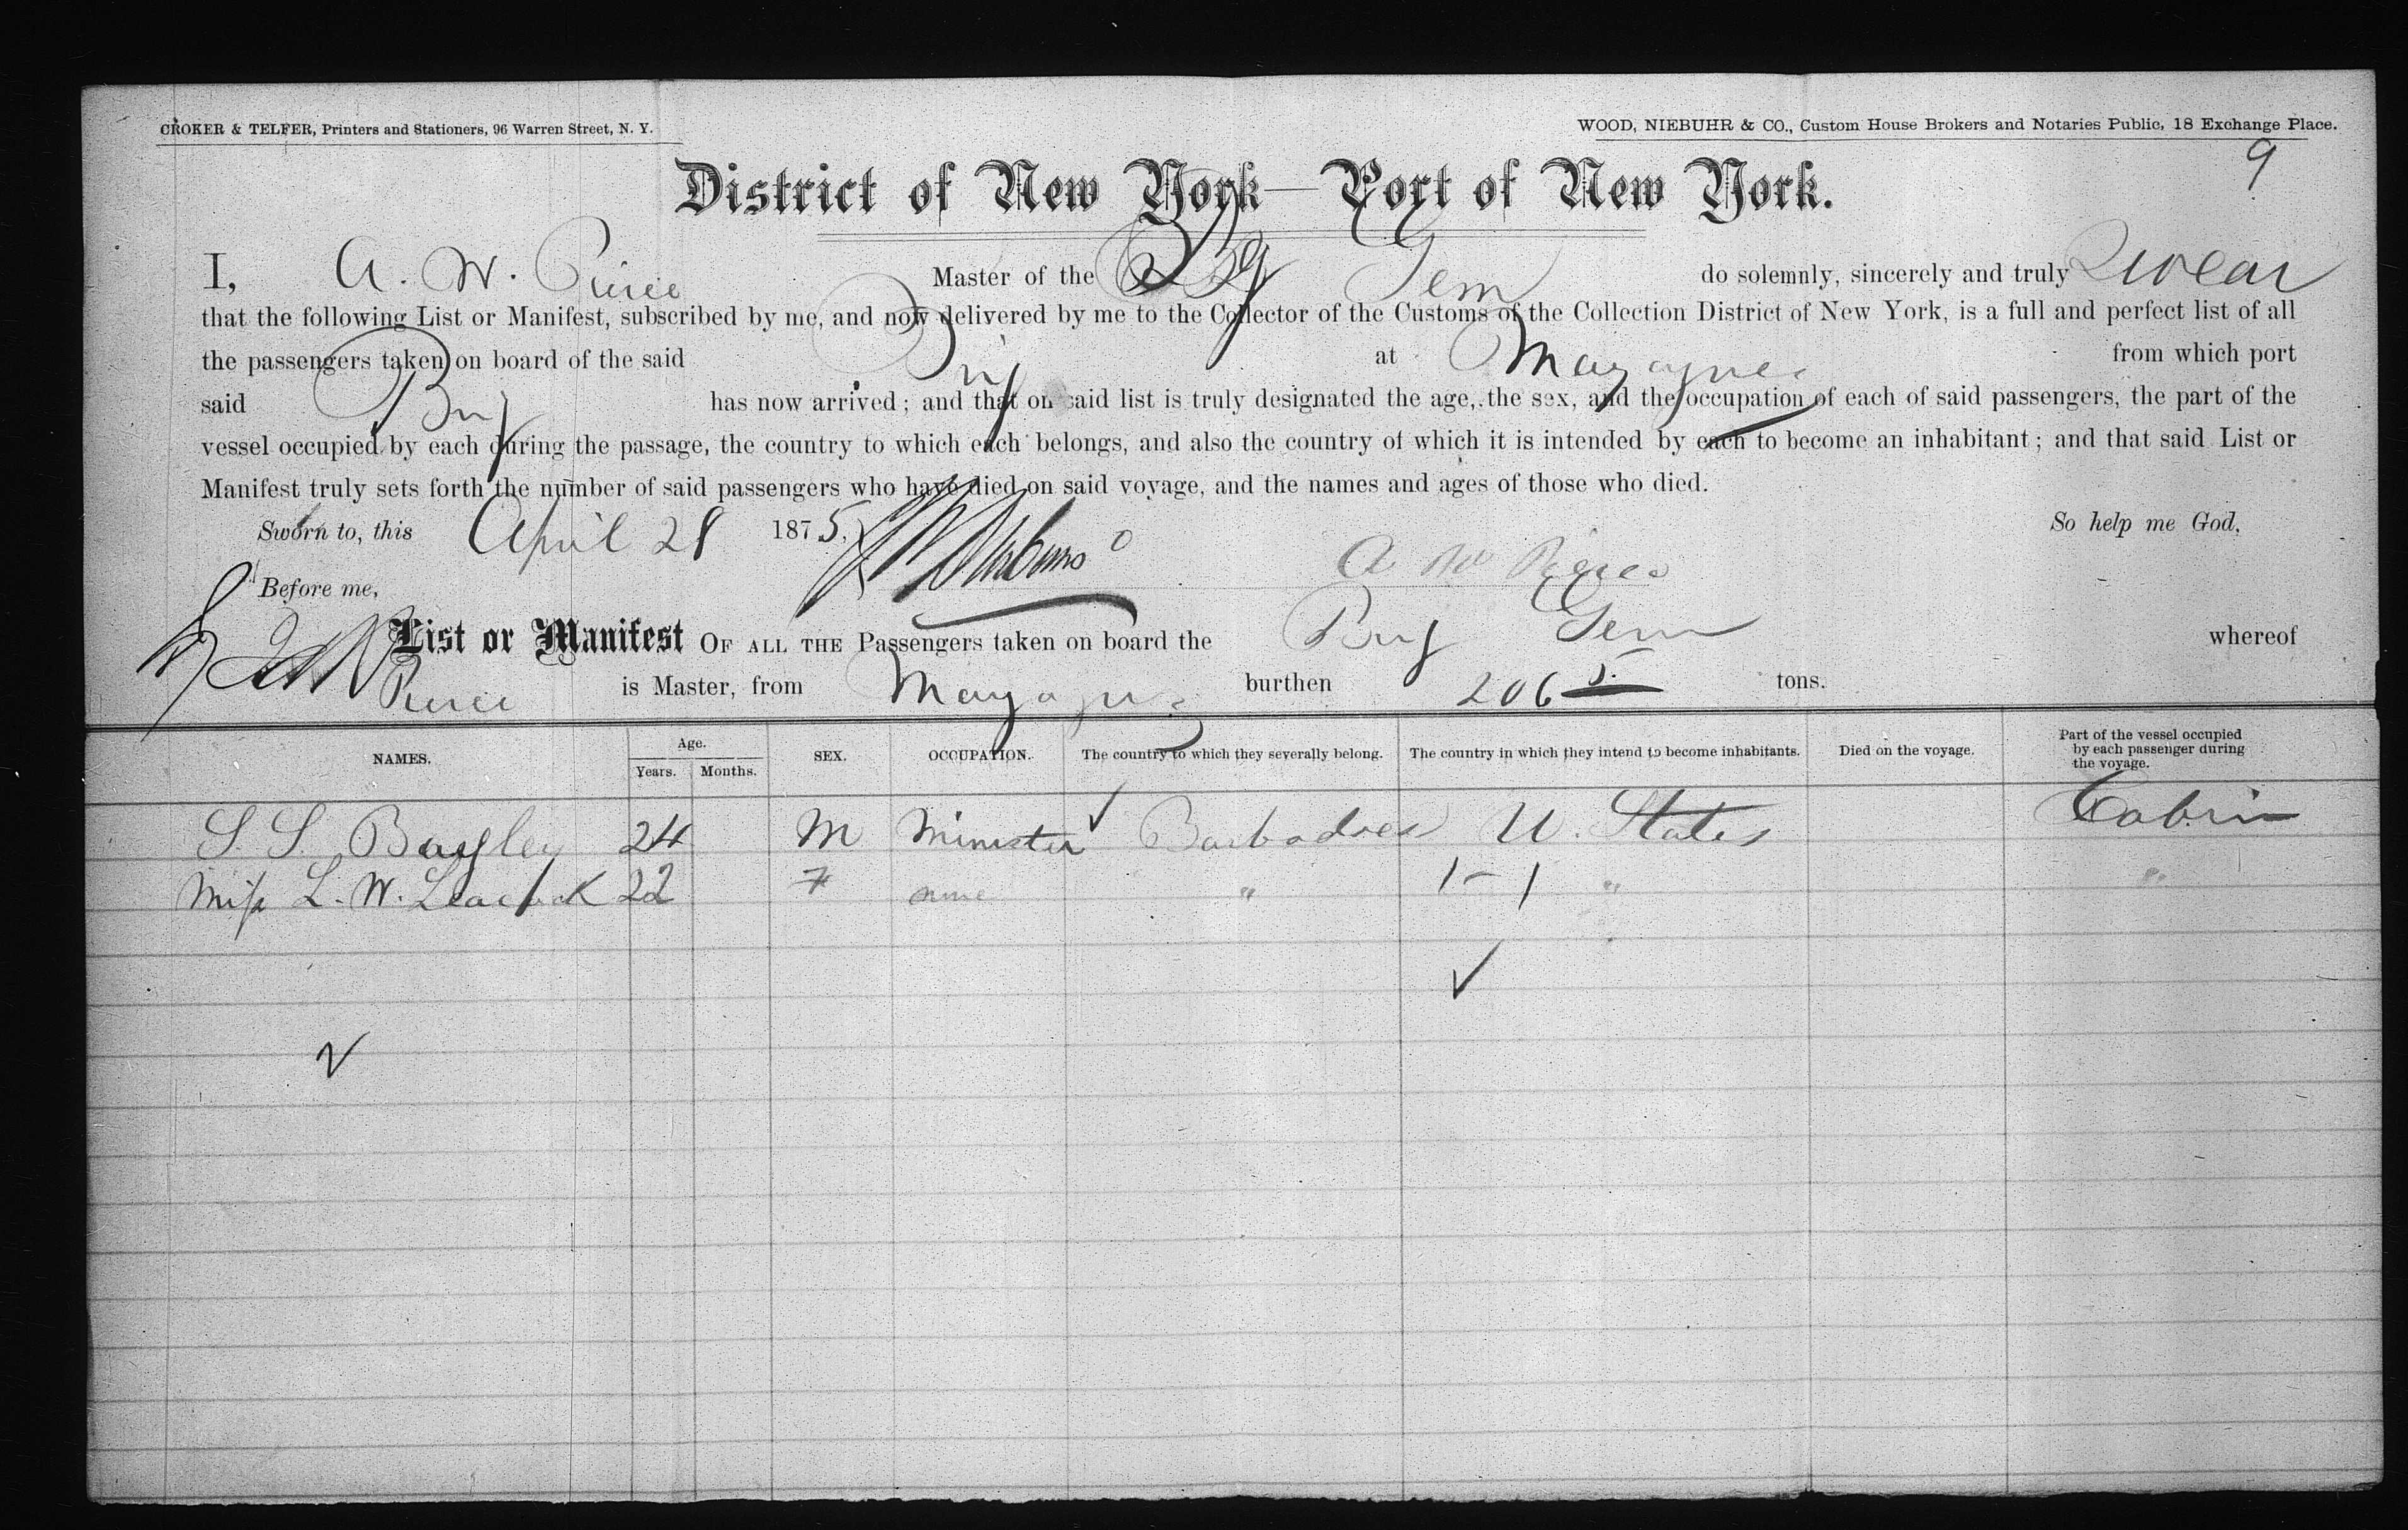 CROKER & TELFER, Printers and Stationers, 96 Warren Street, N. Y.
WOOD, NIEBUHR & CO., Custom House Brokers and Notaries Public, 18 Exchange Place.
9
District of New York—Port of New York.
I, A. W. Pierce Master of the Brig Gem do solemnly, sincerely and truly swear
that the following List or Manifest, subscribed by me, and now delivered by me to the Collector of the Customs of the Collection District of New York, is a full and perfect list of all
the passengers taken on board of the said Brig at Mayaguez from which port
said Brig has now arrived; and that on said list is truly designated the age, the sex, and the occupation of each of said passengers, the part of the
vessel occupied by each during the passage, the country to which each belongs, and also the country of which it is intended by each to become an inhabitant; and that said List or
Manifest truly sets forth the number of said passengers who have died on said voyage, and the names and ages of those who died.
Sworn to, this April 28 1875. So help me God,
A W Pierce
Before me,
List or Manifest OF ALL THE Passengers taken on board the Brig Gem whereof
Pierce is Master, from Mayaguez burthen 206 5 tons.
NAMES. Age. Years. Months. SEX. OCCUPATION. The country to which they severally belong. The country in which they intend to become inhabitants. Died on the voyage. Part of the vessel occupied by each passenger during the voyage.
S. S. Bayley 24 M Minister ✓ Barbadoes U. States Cabin
Miss L. W. Leacock 22 F none " 1 - 1 " "
✓
✓